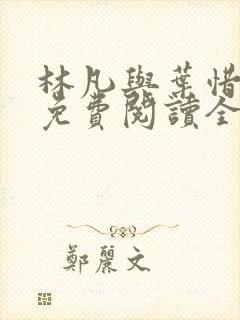 林凡與葉惜
免費閱讀全
鄭麗文